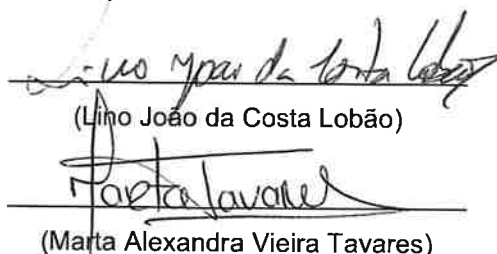 Lino João da Costa Lobão
(Lino João da Costa Lobão)
Marta Tavares
(Marta Alexandra Vieira Tavares)